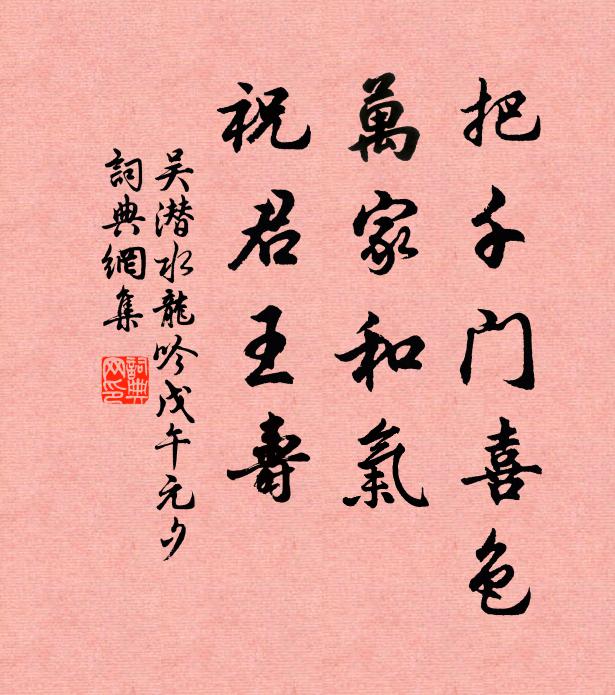 把千门喜色
萬家和氣
祝君王壽
吴潜水龍吟戊午元夕
詞典網集
詞典
网印